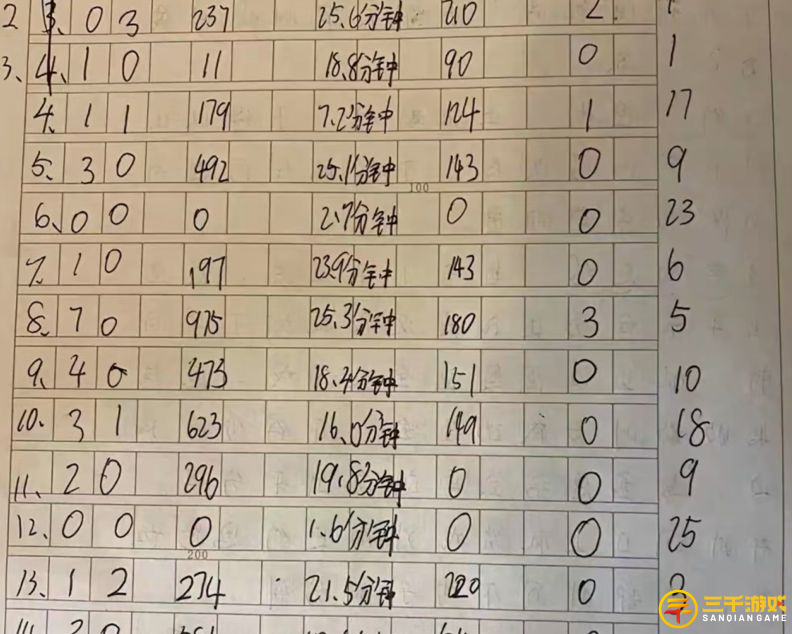 2 3. 0 3 237 25.6分钟 210 2
3. 4. 1 0 11 18.8分钟 90 0 1
4. 1 1 179 7.2分钟 124 1 17
5. 3 0 492 25.1分钟 143 0 9
100
6. 0 0 0 2.7分钟 0 0 23
7. 1 0 197 23.9分钟 143 0 6
8. 7 0 975 25.3分钟 180 3 5
9. 4 0 473 18.4分钟 151 0 10
10. 3 1 623 16.0分钟 149 0 18
11. 2 0 296 19.8分钟 0 0 9
12. 0 0 0 1.6分钟 0 0 25
200
13. 1 2 274 21.5分钟 220 0
三千游戏
SANQIANGAME